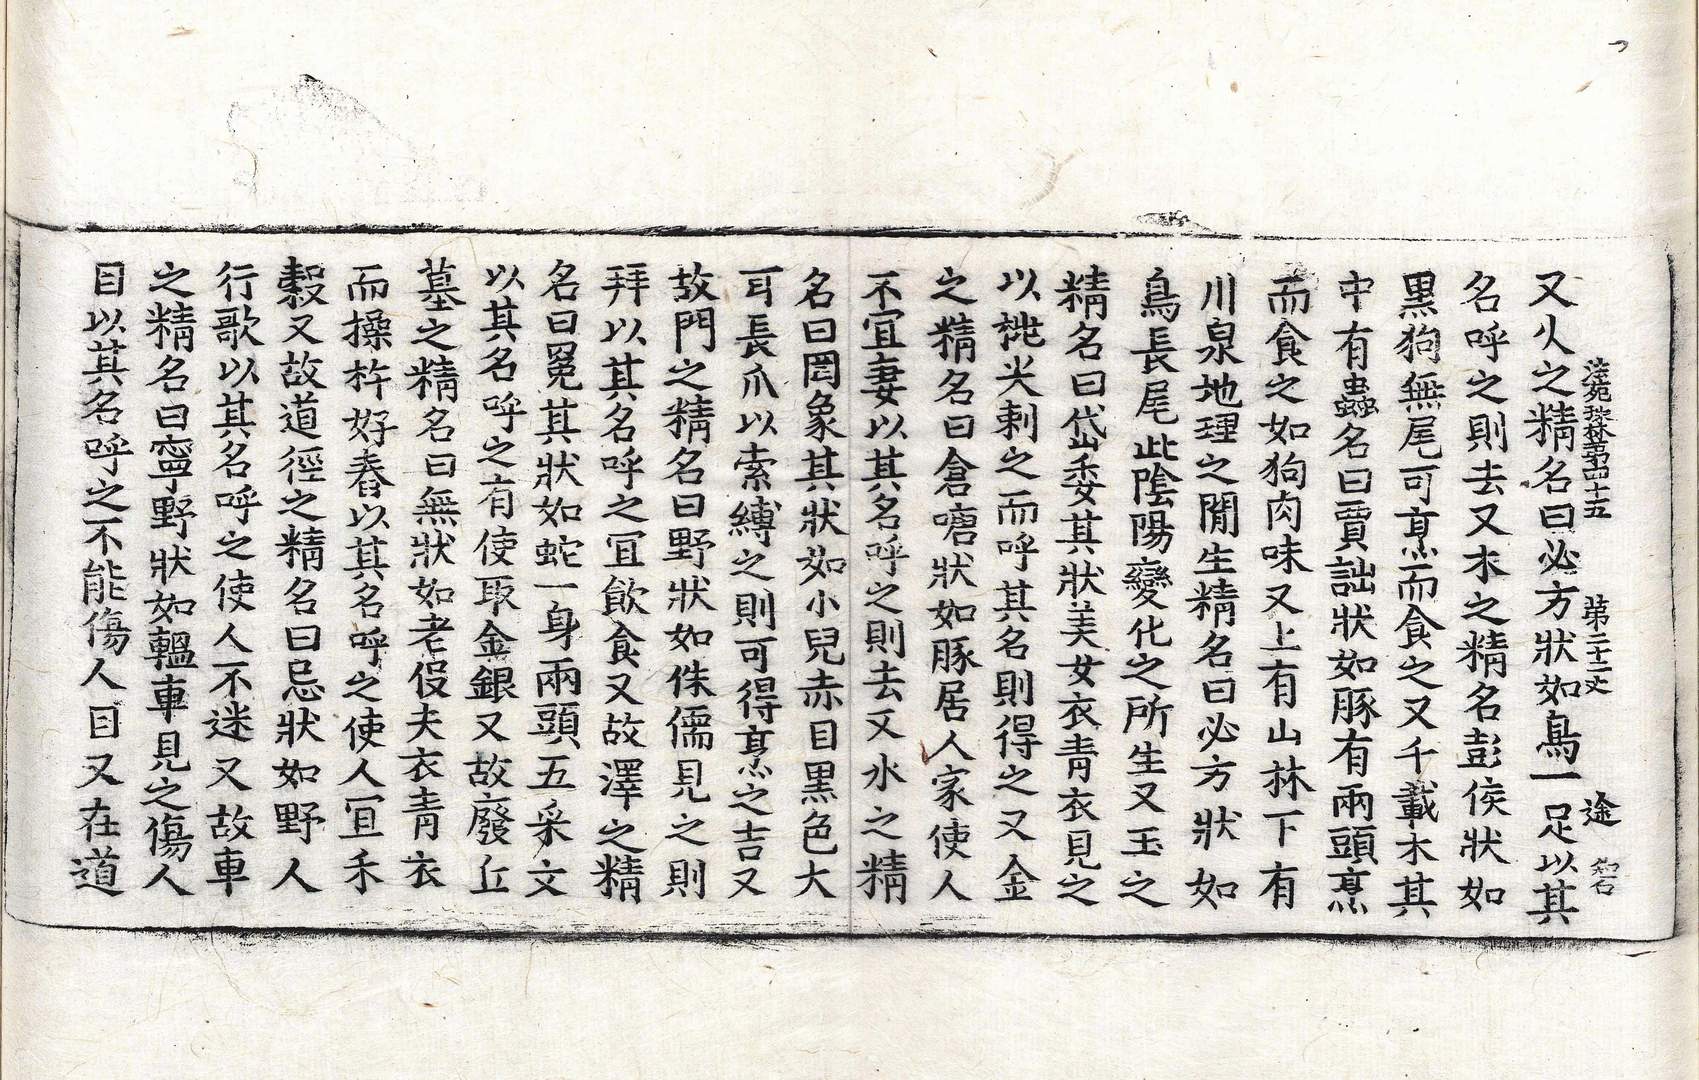 法苑珠林第四十五 第二十二丈 途 知石
又火之精名曰必方狀如鳥一足以其
名呼之則去又木之精名彭侯狀如
黑狗無尾可烹而食之又千載木其
中有蟲名曰賈詘狀如豚有兩頭烹
而食之如狗肉味又上有山林下有
川泉地理之閒生精名曰必方狀如
鳥長尾此陰陽變化之所生又玉之
精名曰岱委其狀美女衣青衣見之
以桃㦸刺之而呼其名則得之又金
之精名曰倉㗽狀如豚居人家使人
不宜妻以其名呼之則去又水之精
名曰罔象其狀如小兒赤目黑色大
耳長爪以索縛之則可得烹之吉又
故門之精名曰野狀如侏儒見之則
拜以其名呼之宜飲食又故澤之精
名曰冕其狀如蛇一身兩頭五采文
以其名呼之有使取金銀又故廢丘
墓之精名曰無狀如老役夫衣青衣
而操杵好舂以其名呼之使人宜禾
穀又故道徑之精名曰忌狀如野人
行歌以其名呼之使人不迷又故車
之精名曰寧野狀如轀車見之傷人
目以其名呼之不能傷人目又在道